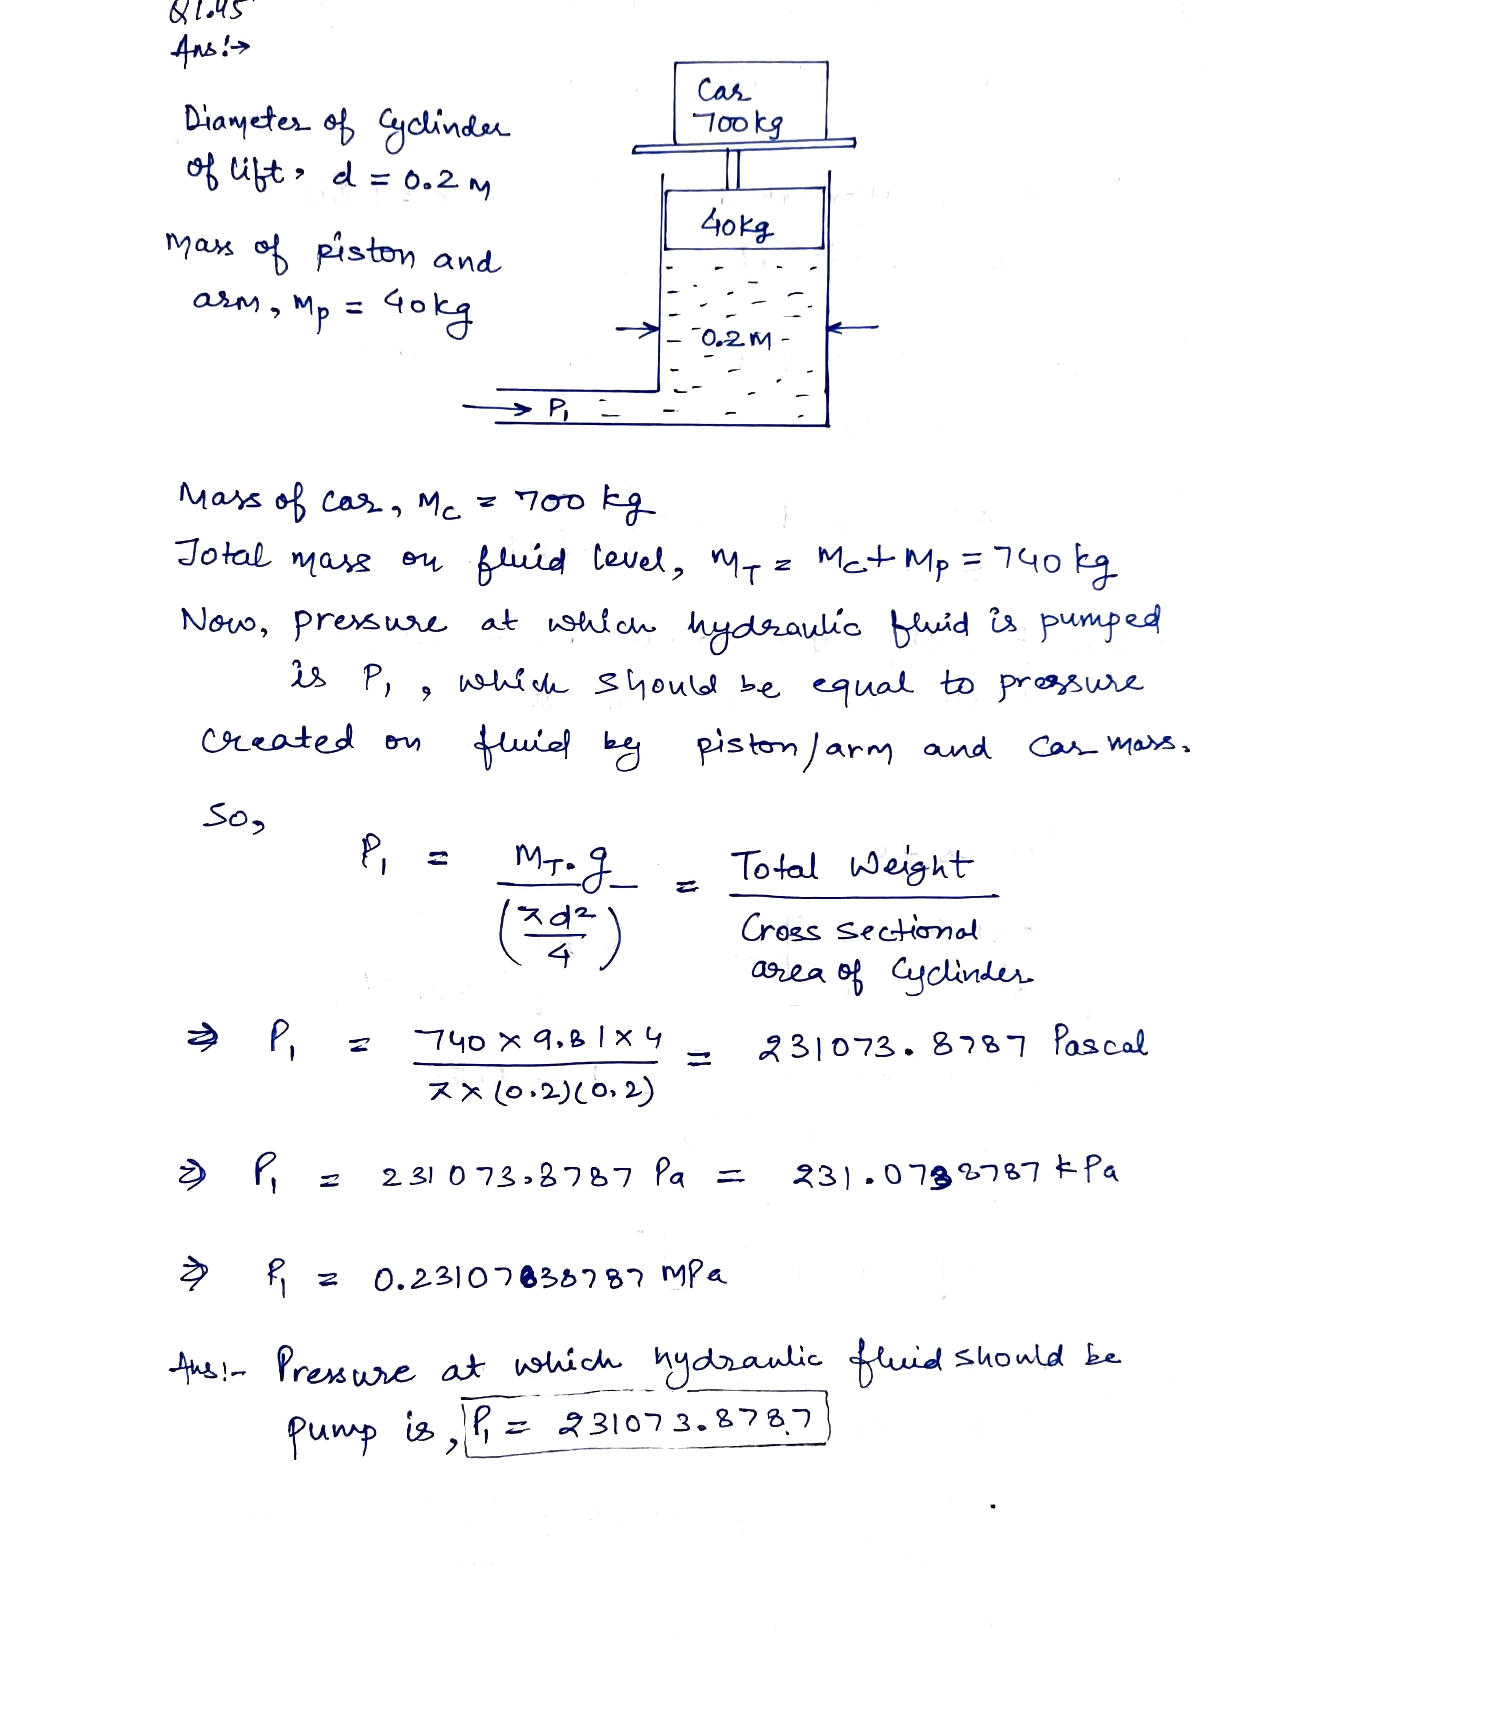 Q1.45
Ans:→
Car
700kg
Diameter of Cyclinder
of lift, d = 0.2 m
40kg
Mass of piston and
arm, Mp = 40kg
0.2 M
P₁
Mass of car, Mc = 700 kg
Total mass on fluid level, MT = Mc + Mp = 740 kg
Now, pressure at which hydraulic fluid is pumped
is P₁, which should be equal to pressure
created on fluid by piston/arm and car mass.
So,
P₁ = MT.g / (πd²/4) = Total Weight / Cross sectional area of Cyclinder
⇒ P₁ = 740 × 9.81 × 4 / π × (0.2)(0.2) = 231073.8787 Pascal
⇒ P₁ = 231073.8787 Pa = 231.0738787 kPa
⇒ P₁ = 0.23107838787 MPa
Ans:- Pressure at which hydraulic fluid should be
pump is, P₁ = 231073.8787